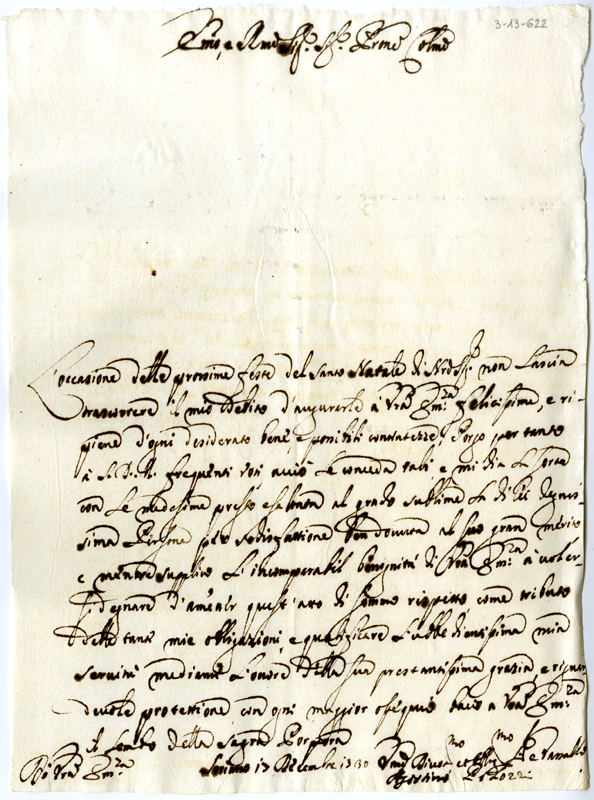 3-13-622
Emo, e Rmo Sig.r Sig.r Prone Colmo
L'occasione delle prossime feste del Santo Natale di Nro Sig.re non lascia
trascorrere il mio debito d'augurarle à Vra Em.za felicissime, e ri-
piene d'ogni desiderato bene, e possibili contentezze; Porgo per tanto
à S. D. M. frequenti voti acciò le conceda tali, e mi dia la sorte
con le medesime presto esaltata al grado sublime la di Lei degnis-
sima Persona per sodisfattione ben dovuta al suo gran merito
e mentre supplico l'incomparabil benignità di Vra Em.za à voler
degnare d'amenir quest'atto di sommo rispetto, come tributo
delle tante mie obligazioni, e qualificare l'ubbidientissima mia
servitù mediante l'onore della sua prestantissima grazia, e
devole protettione con ogni maggior ossequio bacio a Vra Em.za
il lembo della Sagra Porpora
Di Vra Em.za Soriano 17 Decembre 1730